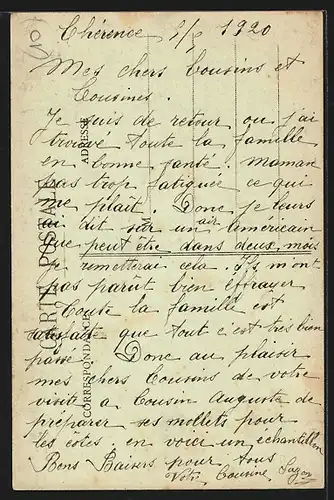 (10)
Chérence 5/5 1920
Mes chers Cousins et
Cousines.
Je suis de retour ou j'ai
trouvé toute la famille
en bonne santé. Maman
pas trop fatiguée ce qui
me plaît. Donc je leurs
ai dit sur un air américain
que peut être dans deux mois
je remetterai cela. Ils m'ont
pas parût bien effrayer
Toute la famille est
satisfaite que tout c'est très bien
passé Donc au plaisir
mes chers Cousins de votre
visite a Cousin Auguste de
préparer ses mollets pour
les côtes. en voir un echantillon
Bons Baisers pour tous
Votre Cousine
CARTE POSTALE
CORRESPONDANCE
ADRESSE